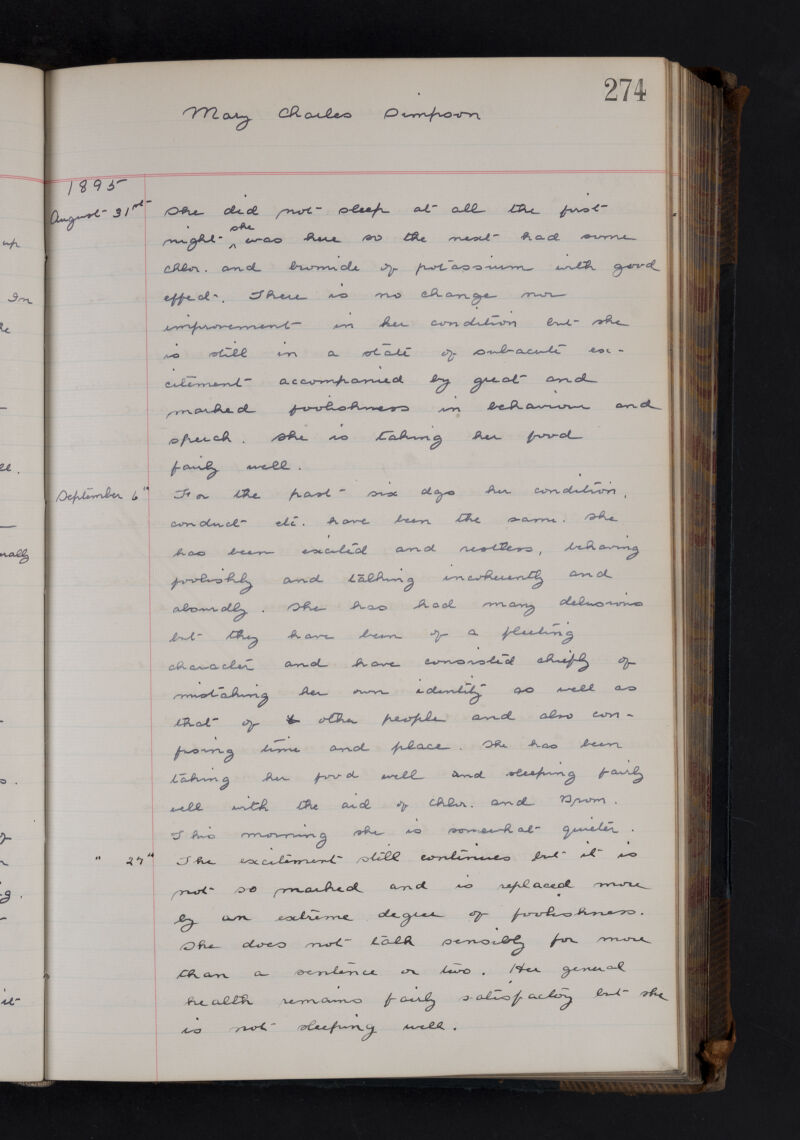 274
Mary Charles Simpson
1895
August 31st She did not sleep at all the first
night she was here so the next had some
chlor. and bromide of potassium with good
effect. There is no change nor
improvement in her condition but she
is still in a state of subacute ex-
citement accompanied by great and
marked foolishness in behaviour and
speech. She is taking her food
fairly well.
September 6" For the past six dys her condition,
conduct etc. have been the same. She
has been excited and restless, behaving
foolishly and talking incoherently and
absurdly. She has had many delusions
but they have been of a fleeting
character and have consisted chiefly of
mistaking her own identity as well as
that of other people and also con-
fusing time and place. She has been
taking her food well and sleeping fairly
well with the aid of chlor. and Brom.
This morning she is somewhat quieter.
" 27" The excitement still continues but it is
not so marked and is replaced more
by an extreme degree of foolishness.
She does not talk sensibly for more
than a sentence or two. Her general
health remains fairly satisfactory but she
is not sleeping well.
up
In